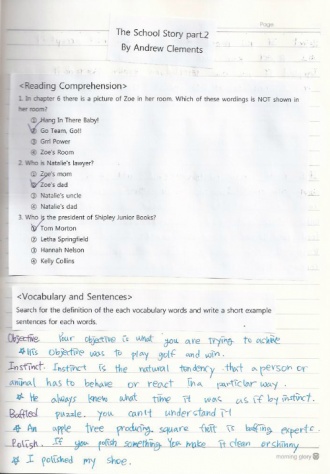 Page:
The School Story part.2
By Andrew Clements
<Reading Comprehension>
1. In chapter 6 there is a picture of Zoe in her room. Which of these wordings is NOT shown in
her room?
① Hang In There Baby!
② Go Team, Go!!
③ Girl Power
④ Zoe's Room
2. Who is Natalie's lawyer?
① Zoe's mom
② Zoe's dad
③ Natalie's uncle
④ Natalie's dad
3. Who is the president of Shipley Junior Books?
① Tom Morton
② Letha Springfield
③ Hannah Nelson
④ Kelly Collins
<Vocabulary and Sentences>
Search for the definition of the each vocabulary words and write a short example
sentences for each words.
Objective Your objective is what you are trying to achive
* His objective was to play golf and win.
Instinct Instinct is the natural tendency that a person or
animal has to behave or react in a particular way.
* He always knew what time it was as if by instinct.
Baffled puzzle. you can't understand it
* An apple tree producing square fruit is baffling experts.
Polish. If you polish something You make it clean or shinny
morning glory
* I polished my shoe.